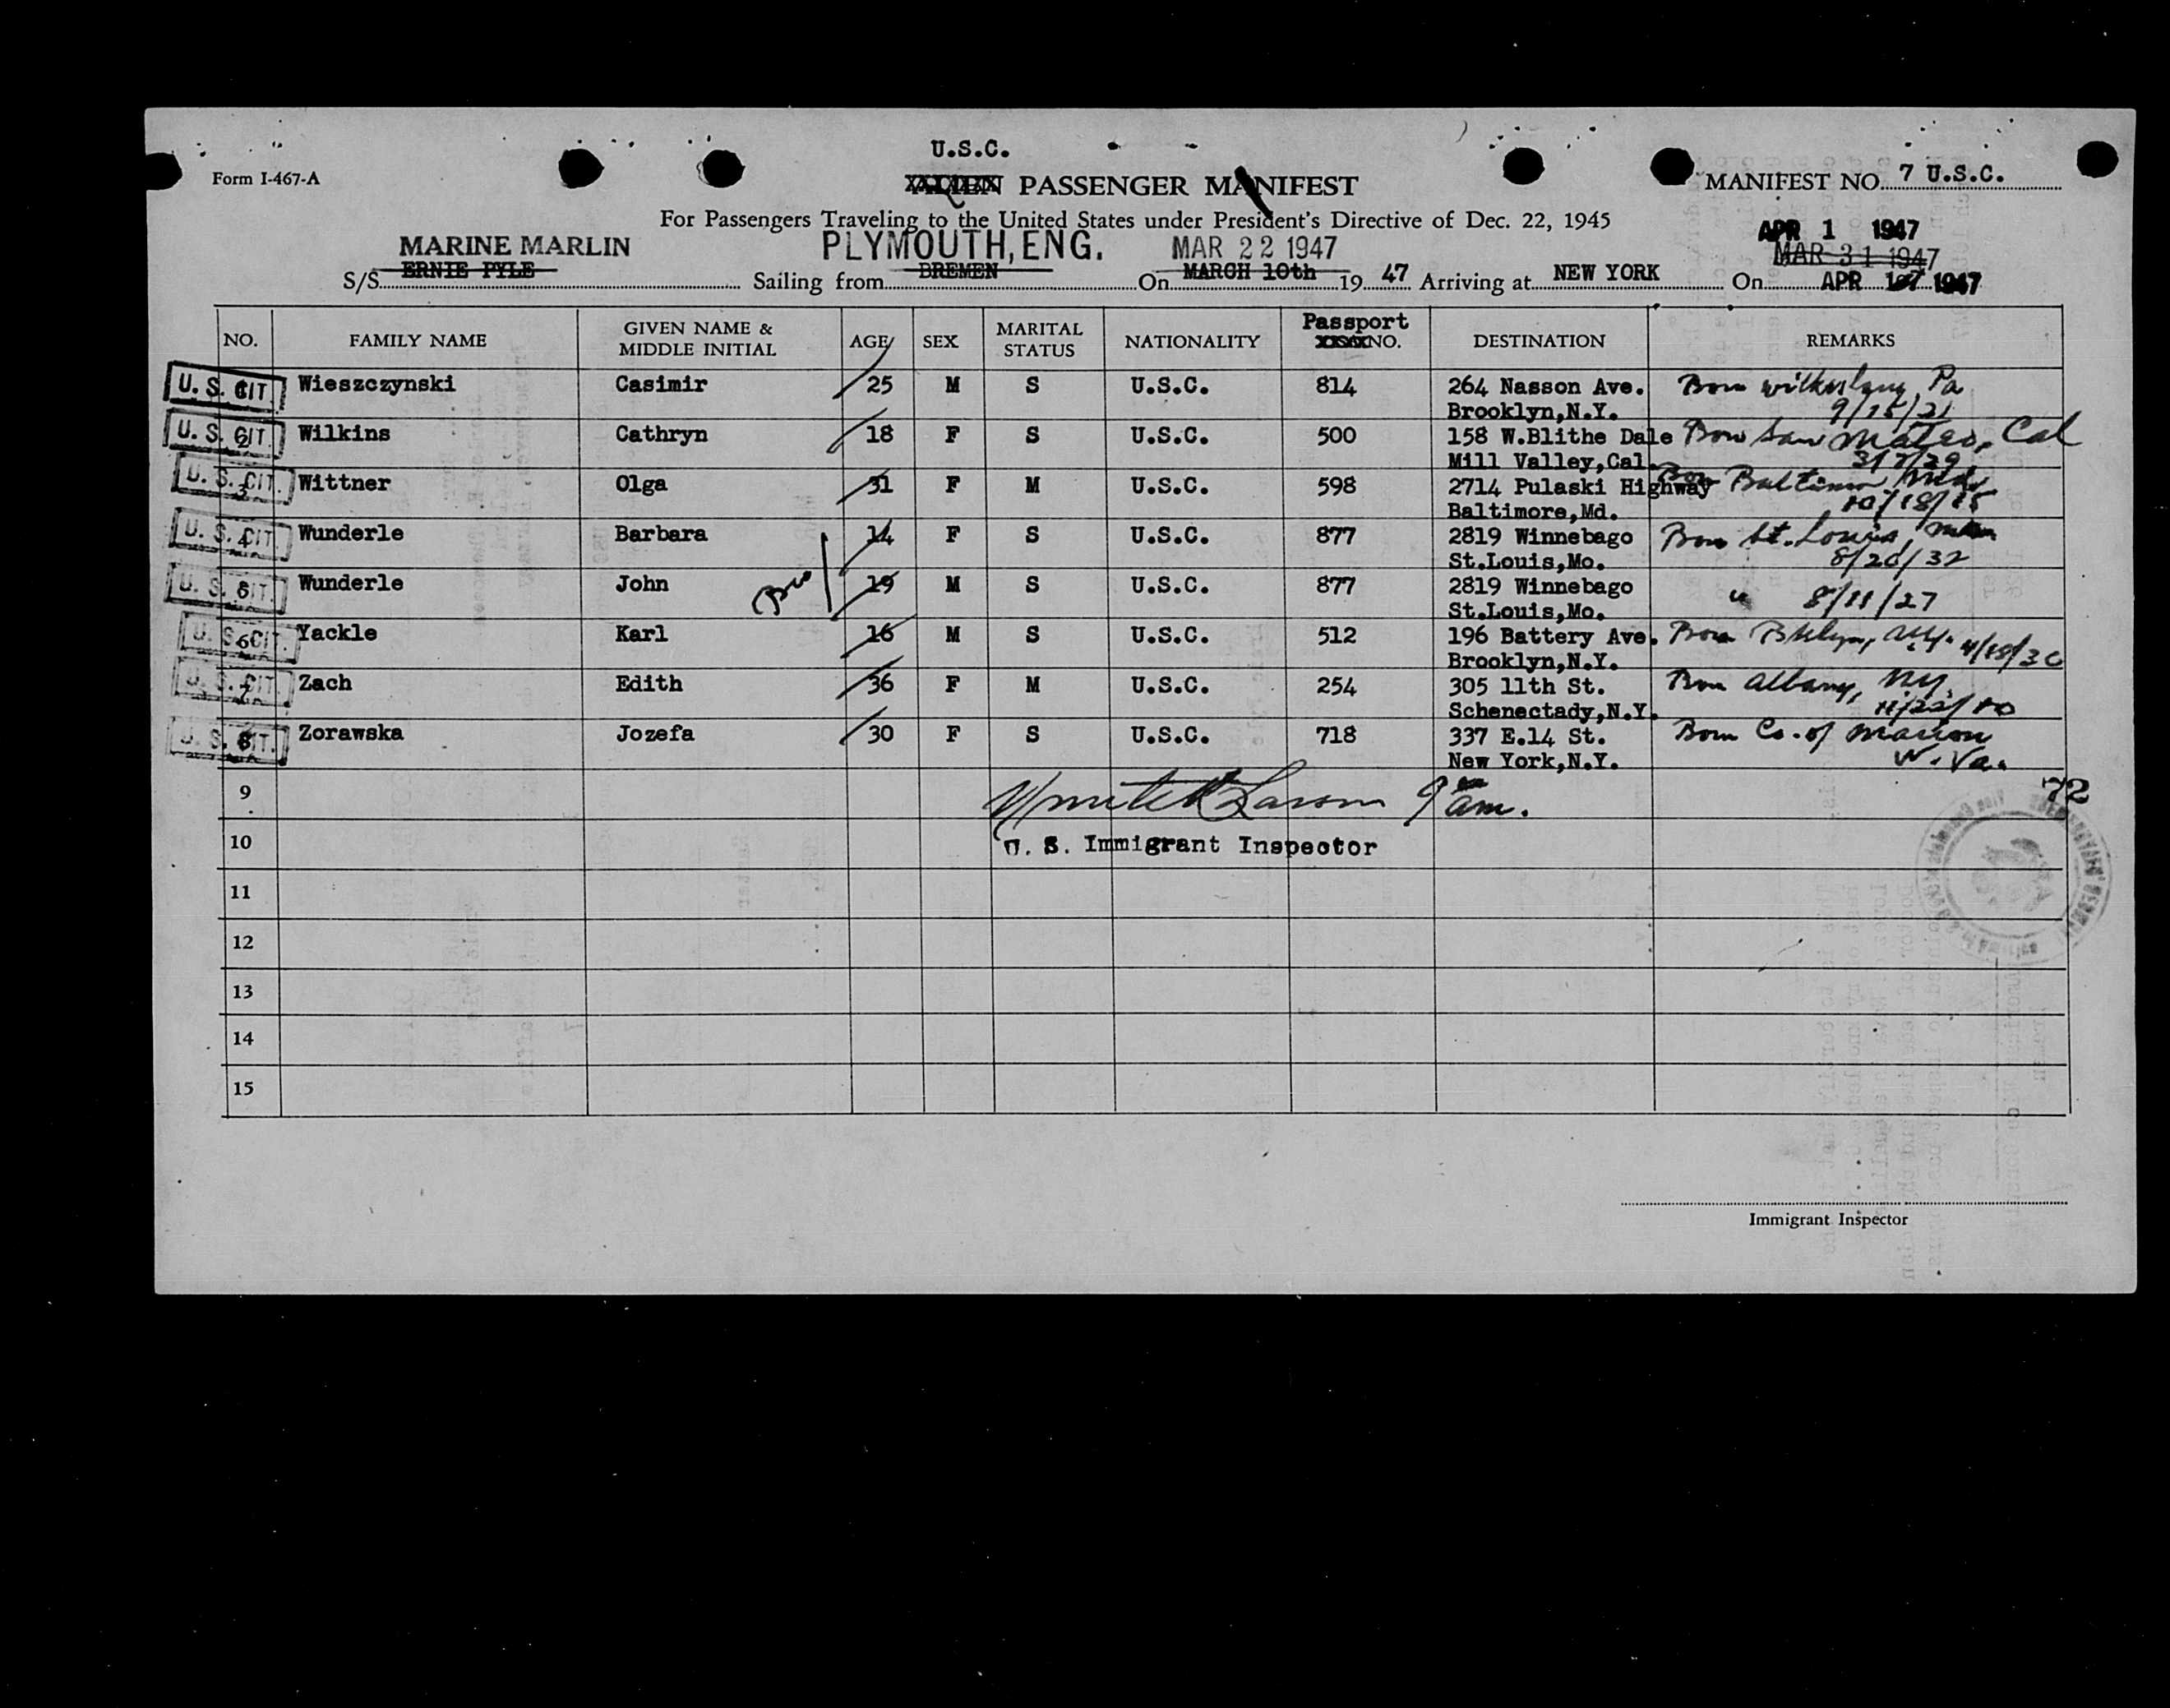 U.S.C.
Form I-467-A
ALIEN PASSENGER MANIFEST
MANIFEST NO. 7 U.S.C.
For Passengers Traveling to the United States under President's Directive of Dec. 22, 1945
APR 1 1947
MARINE MARLIN PLYMOUTH, ENG. MAR 22 1947 MAR 31 1947
S/S ERNIE PYLE Sailing from BREMEN On MARCH 10th 19 47 Arriving at NEW YORK On APR 1 1947
NO. FAMILY NAME GIVEN NAME & MIDDLE INITIAL AGE SEX MARITAL STATUS NATIONALITY Passport NO. DESTINATION REMARKS
U. S. CIT. 1 Wieszczynski Casimir 25 M S U.S.C. 814 264 Nasson Ave. Born Pa
Brooklyn,N.Y. 9/15/21
U. S. CIT. 2 Wilkins Cathryn 18 F S U.S.C. 500 158 W.Blithe Dale Born San Mateo, Cal
Mill Valley,Cal.
U. S. CIT. 3 Wittner Olga 31 F M U.S.C. 598 2714 Pulaski Highway Born Baltimore Md.
Baltimore,Md. 10/18/15
U. S. CIT. 4 Wunderle Barbara 14 F S U.S.C. 877 2819 Winnebago Born St. Louis,
St.Louis,Mo. 8/20/32
U. S. CIT. 5 Wunderle John 19 M S U.S.C. 877 2819 Winnebago " 8/11/27
St.Louis,Mo.
Bro
U. S. CIT. 6 Yackle Karl 16 M S U.S.C. 512 196 Battery Ave. Born Bklyn, N.Y. 4/18/30
Brooklyn,N.Y.
U. S. CIT. 7 Zach Edith 36 F M U.S.C. 254 305 11th St. Born Albany, N.Y.
Schenectady,N.Y. 11/22/10
U. S. CIT. 8 Zorawska Jozefa 30 F S U.S.C. 718 337 E.14 St. Born Co. of Marion
New York,N.Y. W. Va.
9 Larson 9 am. 72
10 U. S. Immigrant Inspector
11
12
13
14
15
Immigrant Inspector